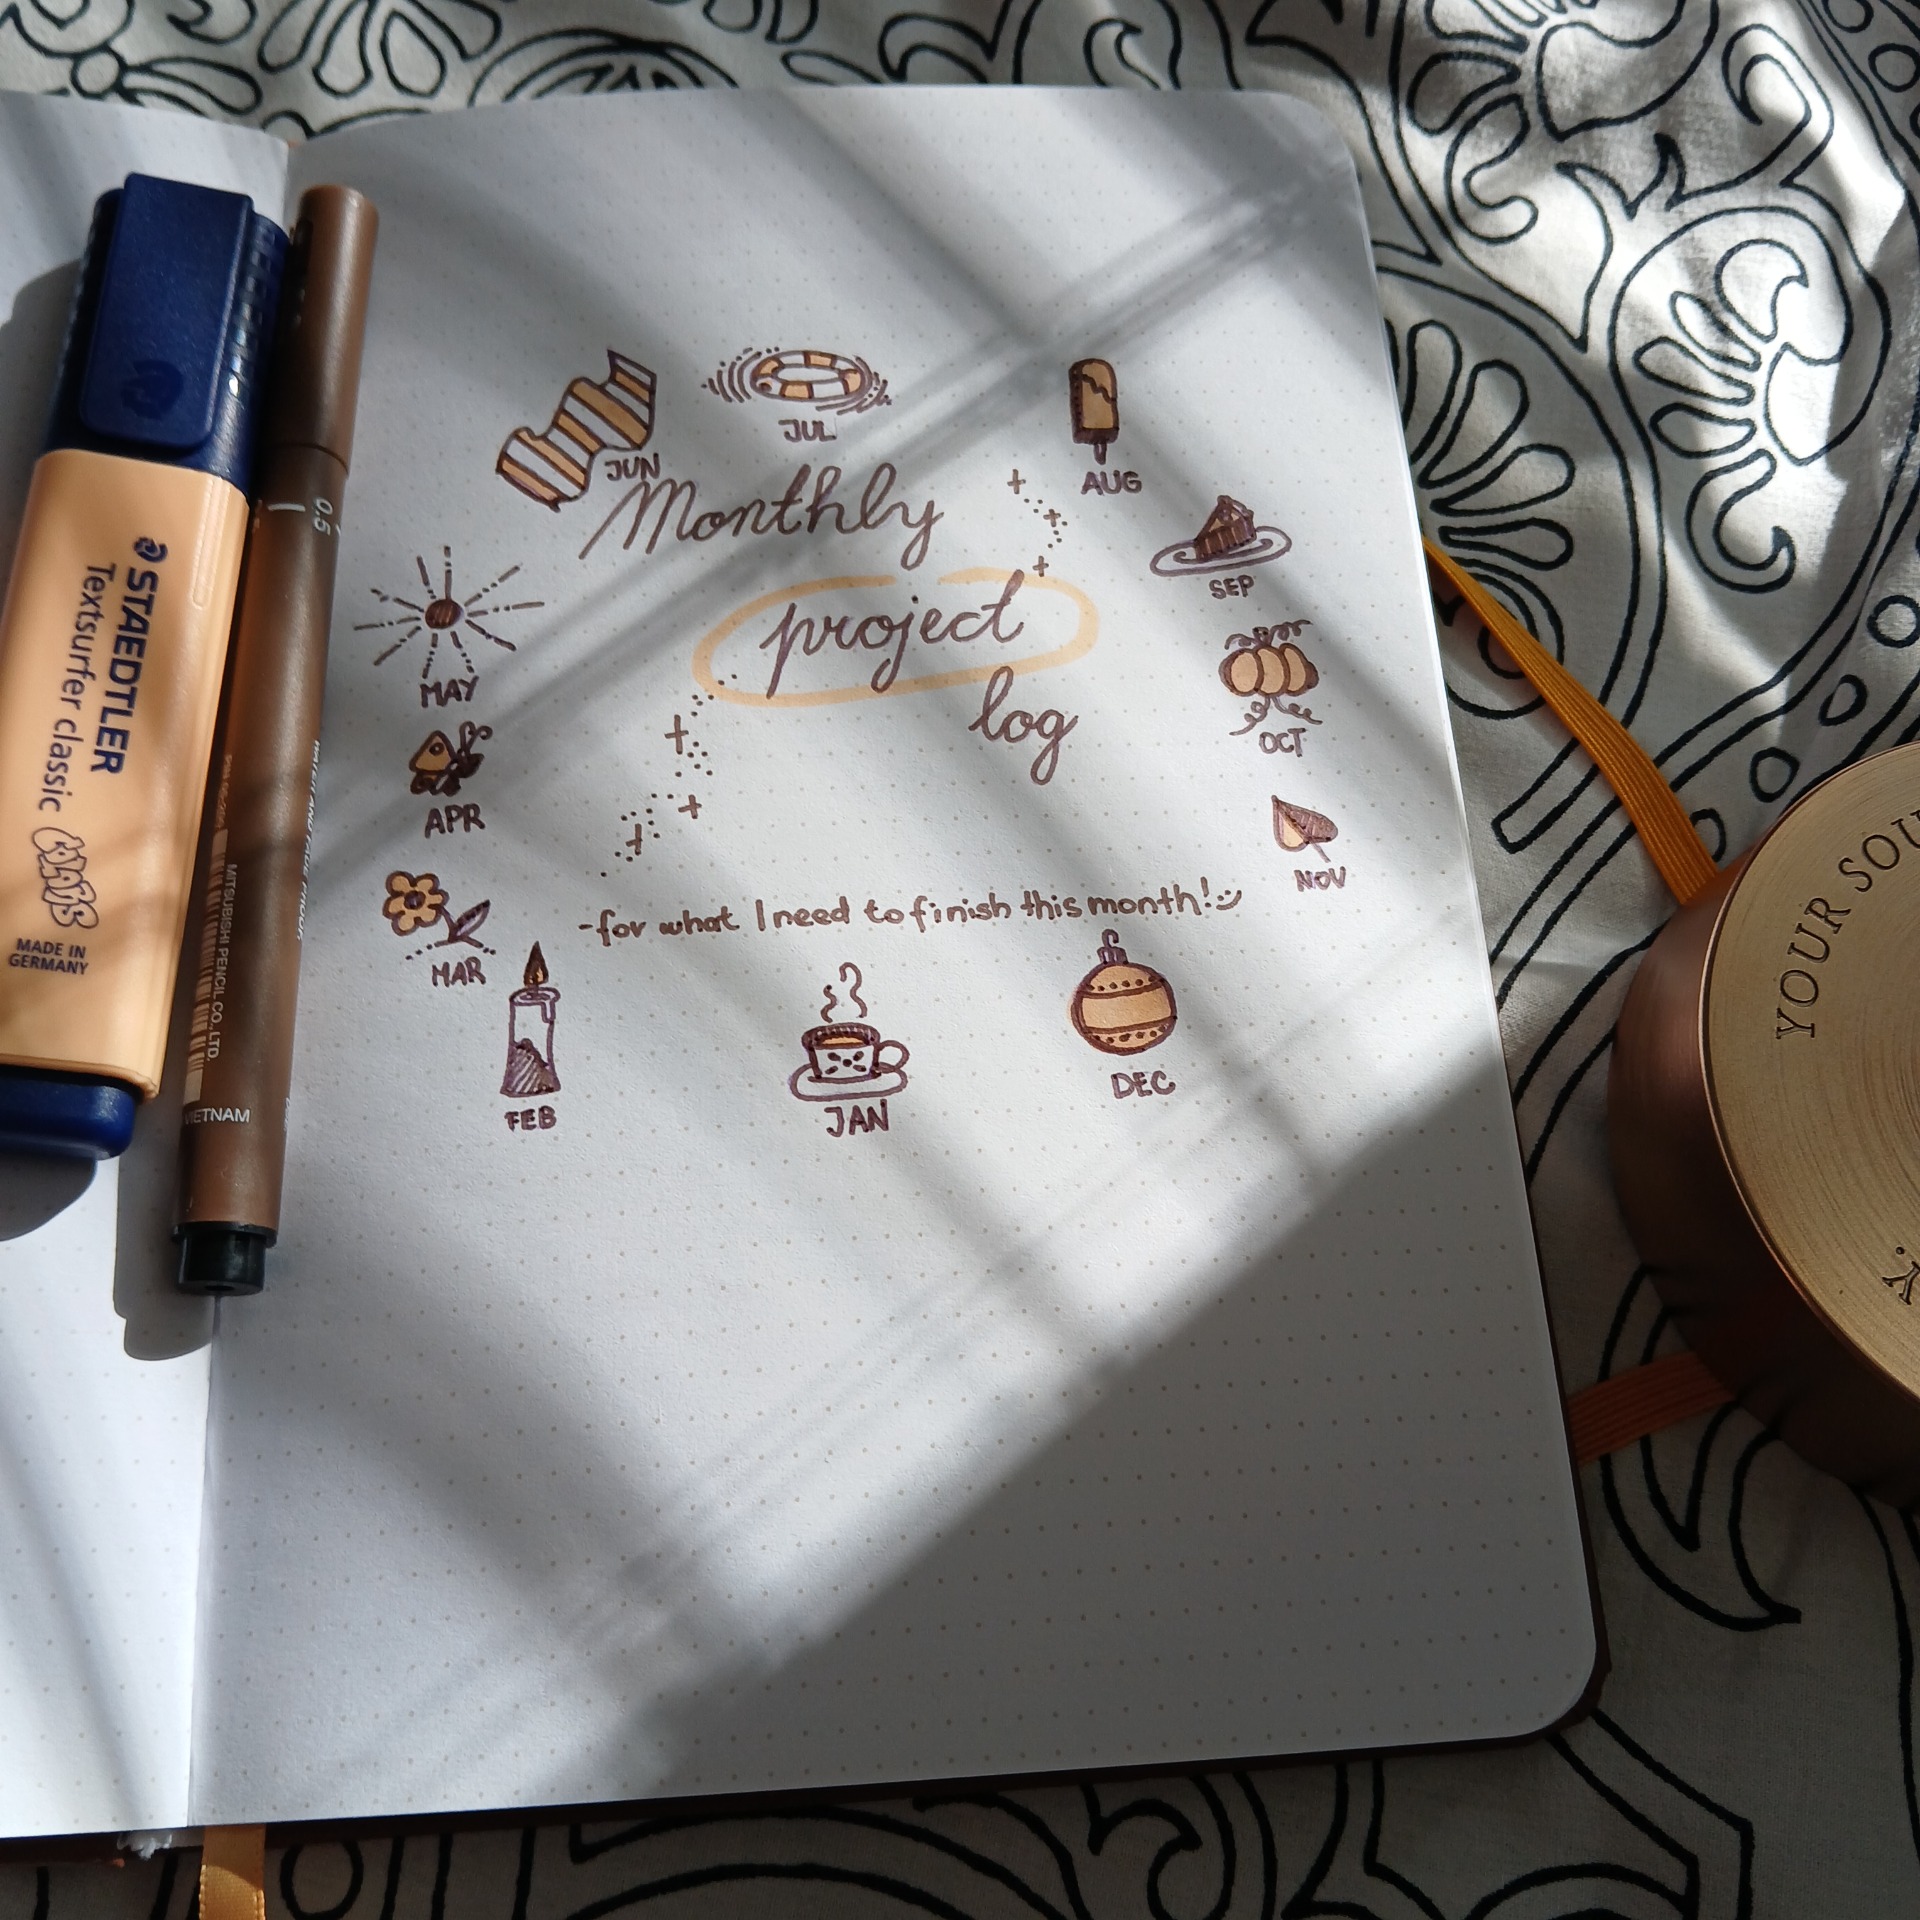 JUL
JUN
AUG
Monthly
SEP
project
MAY
log
OCT
APR
NOV
-for what I need to finish this month!
MAR
DEC
FEB
JAN
STAEDTLER
Textsurfer classic
MADE IN
GERMANY
0.5
MITSUBISHI PENCIL CO., LTD.
VIETNAM
YOUR SOU
Y.